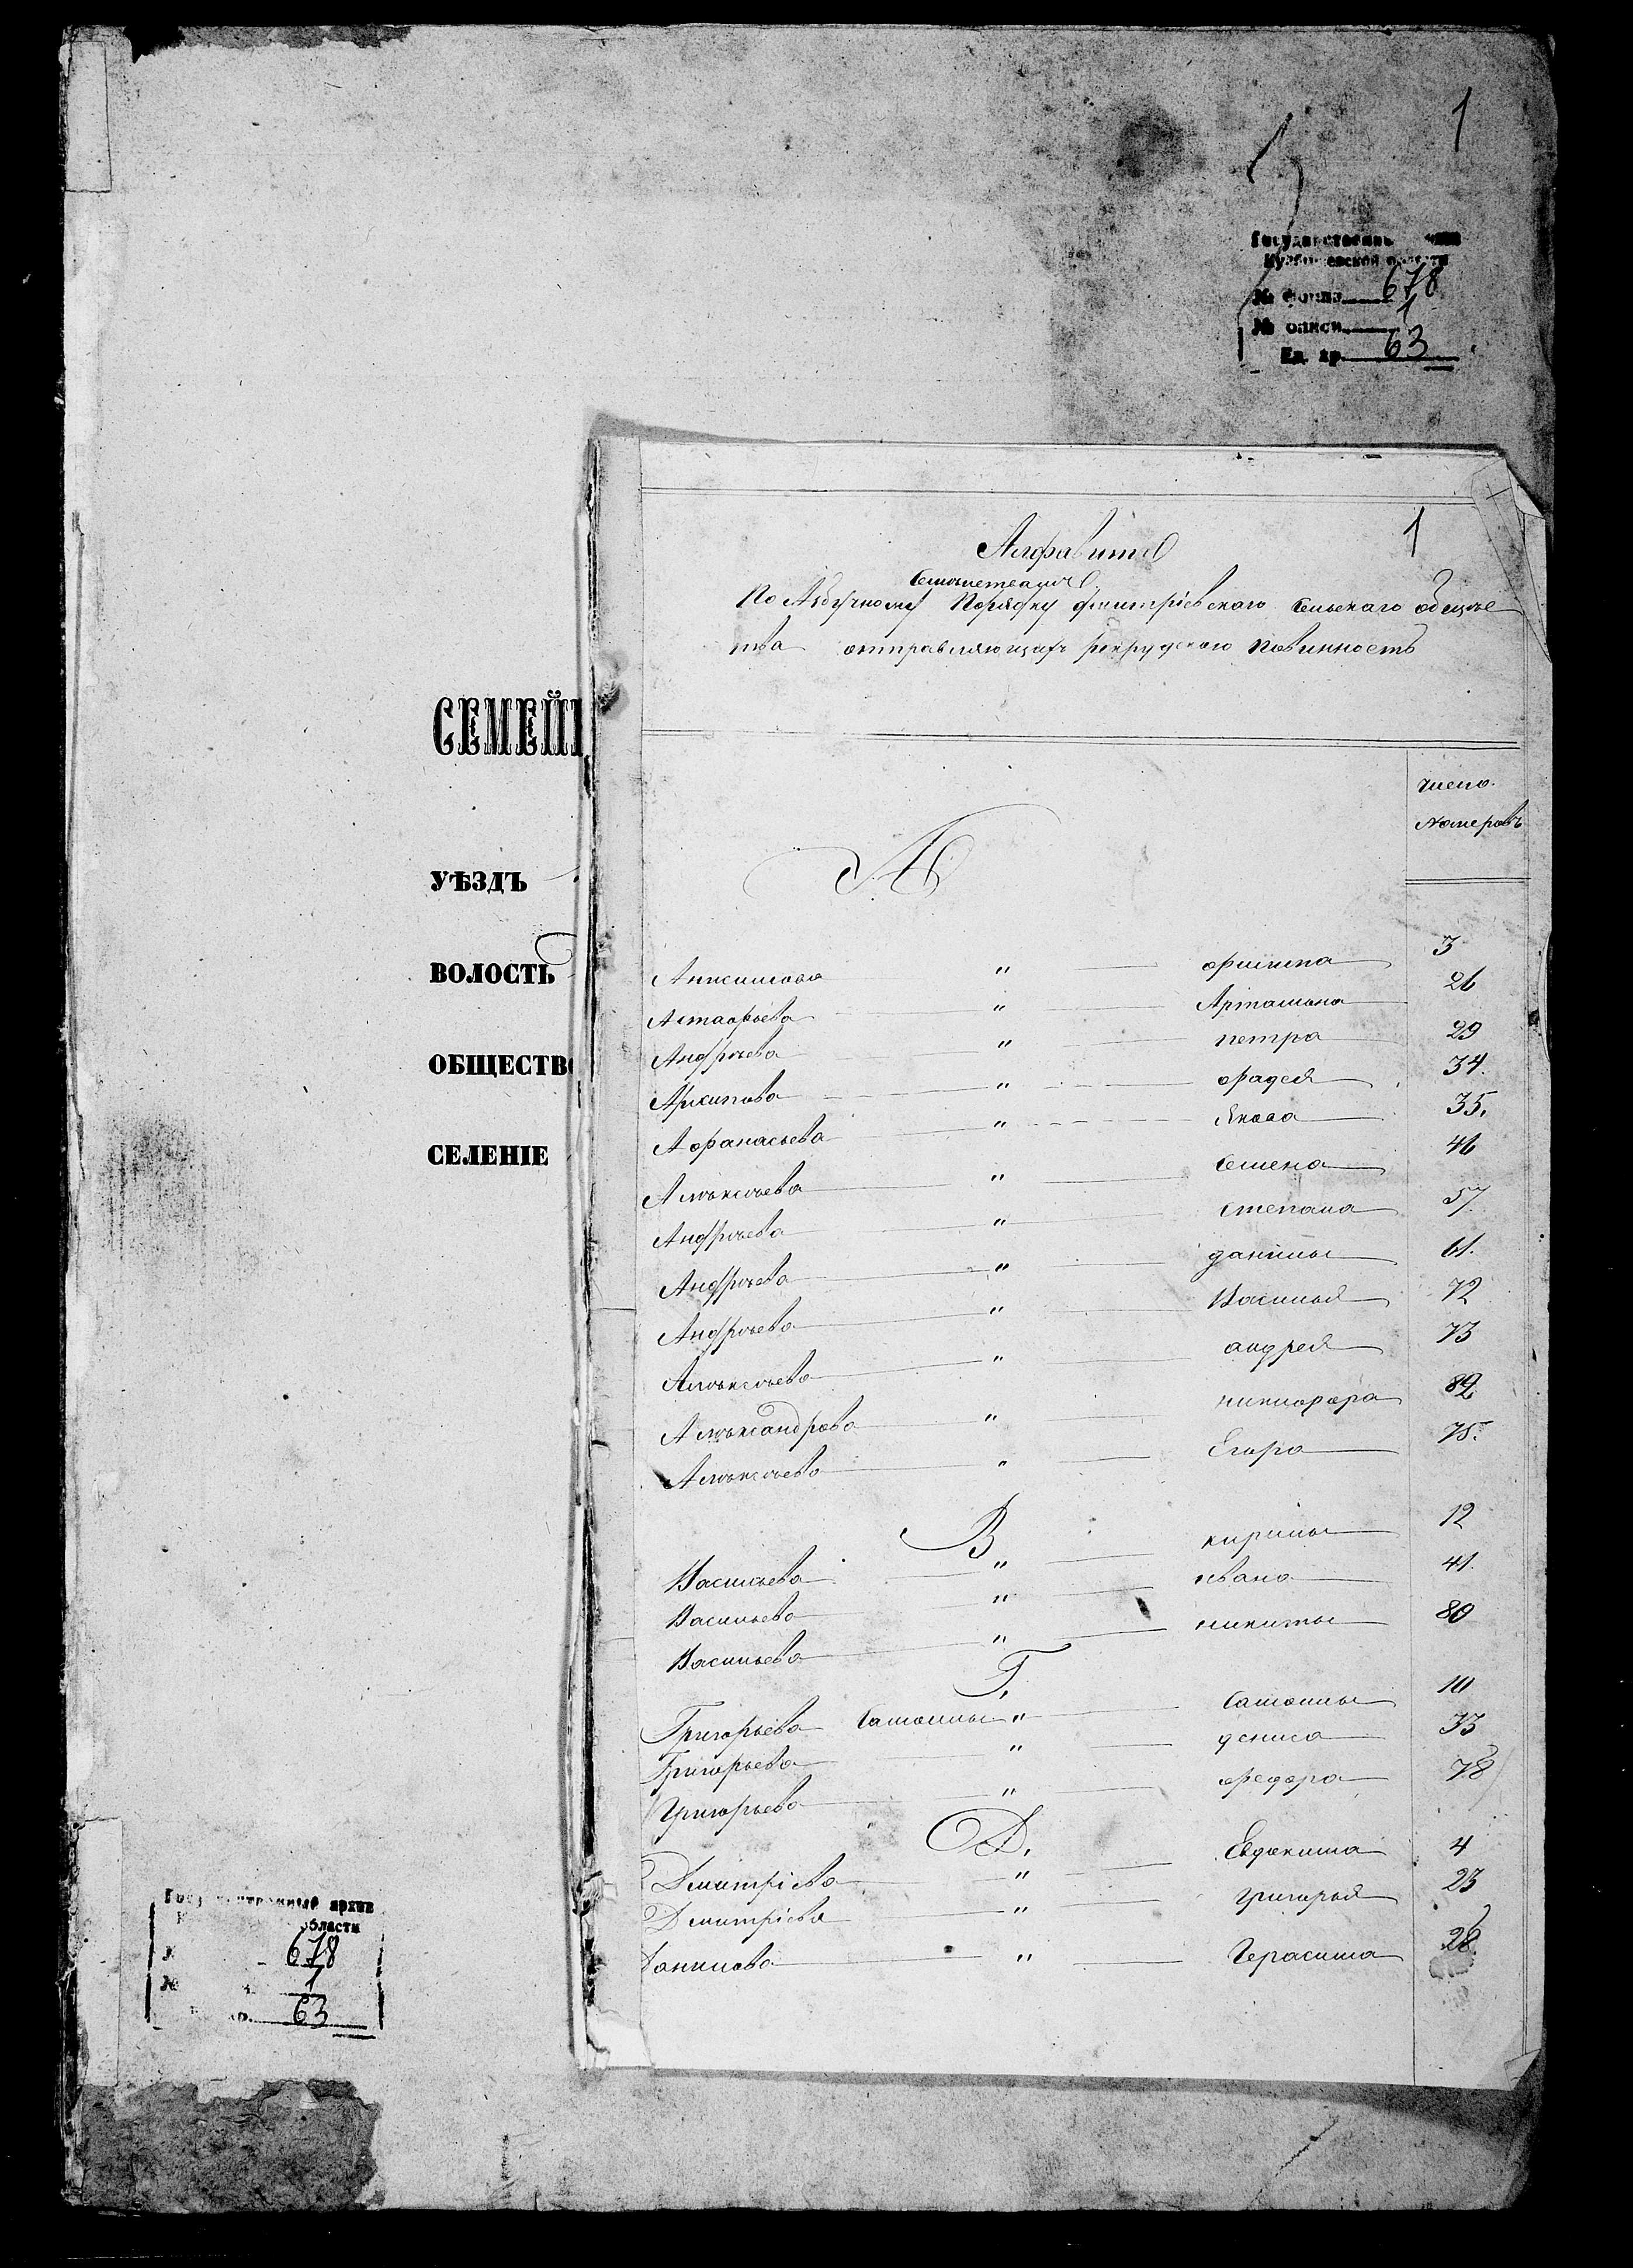 1
Государственный архив
Куйбышевской области
№ фонда 678
№ описи 1
Ед. хр. 63
СЕМЕЙ
УѢЗДЪ
ВОЛОСТЬ
ОБЩЕСТВО
СЕЛЕНІЕ
1
Алфавитъ
По Азбучному Порядку Дмитріевскаго Сельскаго обще
тва отправляющихъ рекрудскою повинность
число
номеровъ
А
Анисимова " фились 3
Астафьева " Артамона 26
Андрѣева " петра 29
Архипова " фадея 34.
Афанасьева " Якова 35.
Алѣксѣева " Семена 46
Андрѣева " степана 57
Андрѣева " данилы 61.
Андрѣева " Василья 72
Алѣксѣева " андрея 73
Алѣксандрова " никифора 82
Алѣксѣева " Егора 75.
В
Васильева " кирилы 12
Васильева " ивана 41.
Васильева " никиты 80
Г.
Григорьева Самойлы " Самойлы 10
Григорьева " дениса 33
Григорьева " федора 78
Д.
Дмитріева " Евдокима 4
Дмитріева " григорья 23
Данилова " Герасима 28
Государственный архив
области
678
№ 1
63